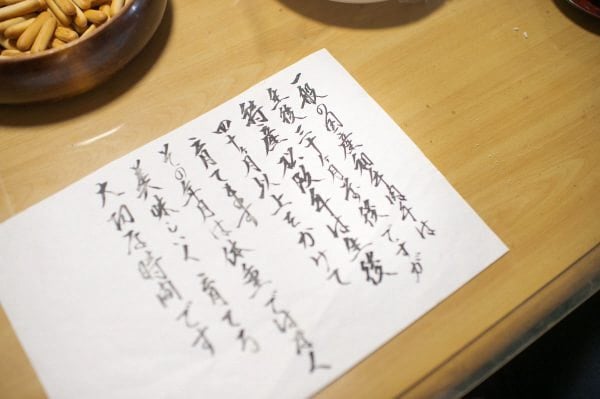 一般の国産和牛肉牛は
生後三十ヶ月前後ですが
特産松阪牛は生後
四十ヶ月以上をかけて
育てます
その年月は体重ではなく
美味しく育てる
大切な時間です